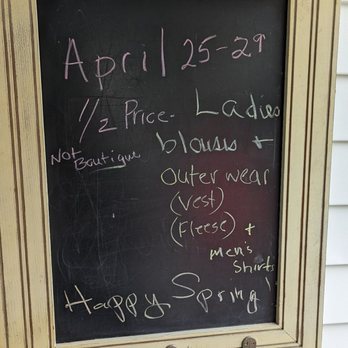 April 25-29
1/2 Price. Ladies
Not Boutique
blouses +
outer wear
(vest)
(Fleese) +
men's
shirts
Happy Spring!